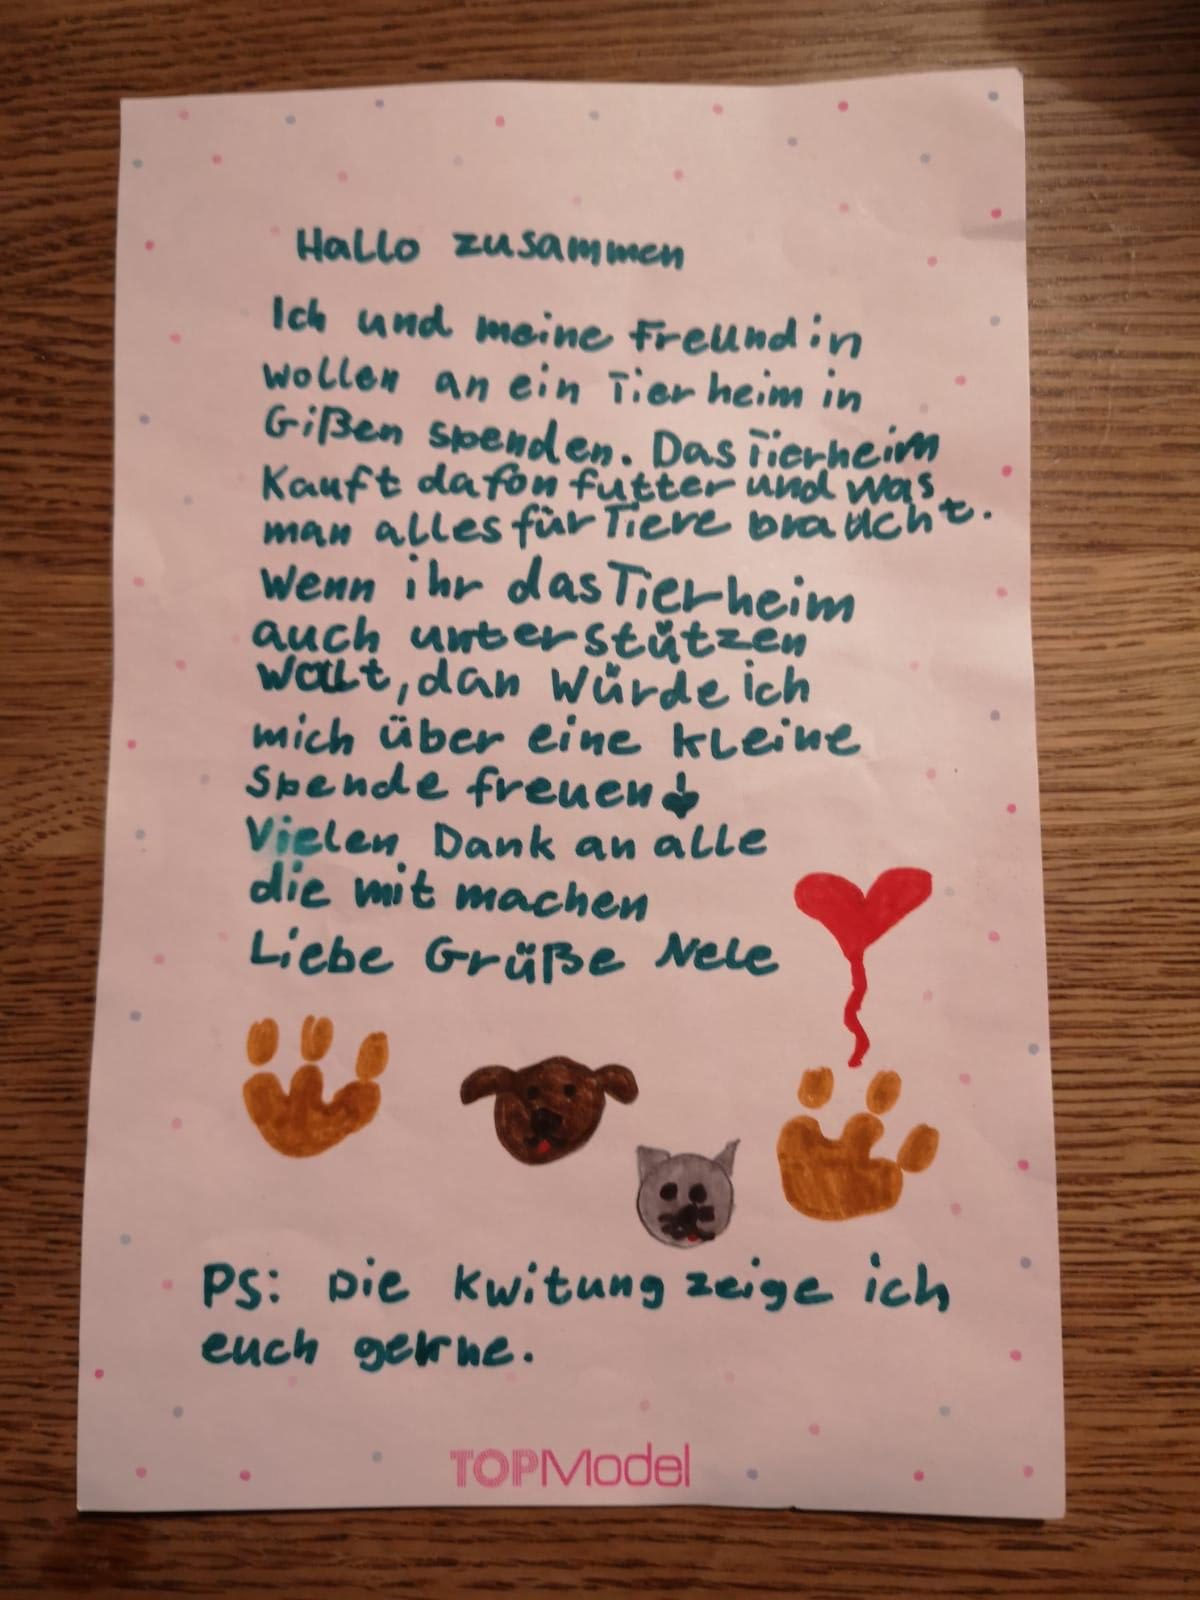 Hallo zusammen
Ich und meine Freundin
wollen an ein Tierheim in
Gißen spenden. Das Tierheim
Kauft dafon futter und was
man alles für Tiere braucht.
Wenn ihr das Tierheim
auch unterstützen
wollt, dan würde ich
mich über eine kleine
Spende freuen
Vielen Dank an alle
die mit machen
Liebe Grüße Nele
PS: Die Kwitung zeige ich
euch gerne.
TOPModel